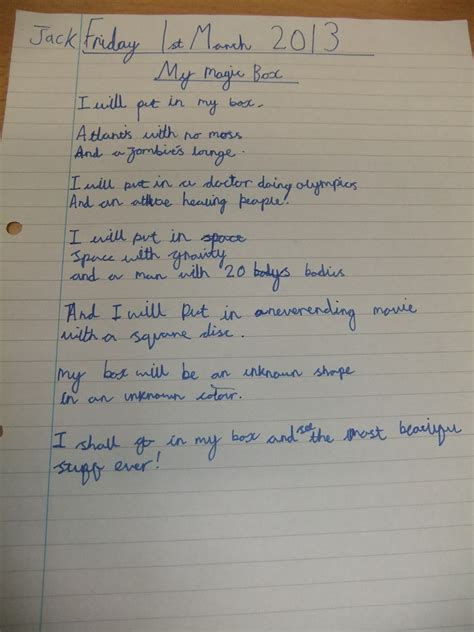 Jack Friday 1st March 2013
My Magic Box
I will put in my box.
Atlantis with no moss
And a zombie's lounge.
I will put in a doctor doing olympics
And an athlete healing people.
I will put in space
Space with gravity
and a man with 20 bodys bodies
And I will Put in a neverending movie
with a square disc.
My box will be an unknown shape
in an unknown colour.
I shall go in my box and see the most beautiful
stuff ever!